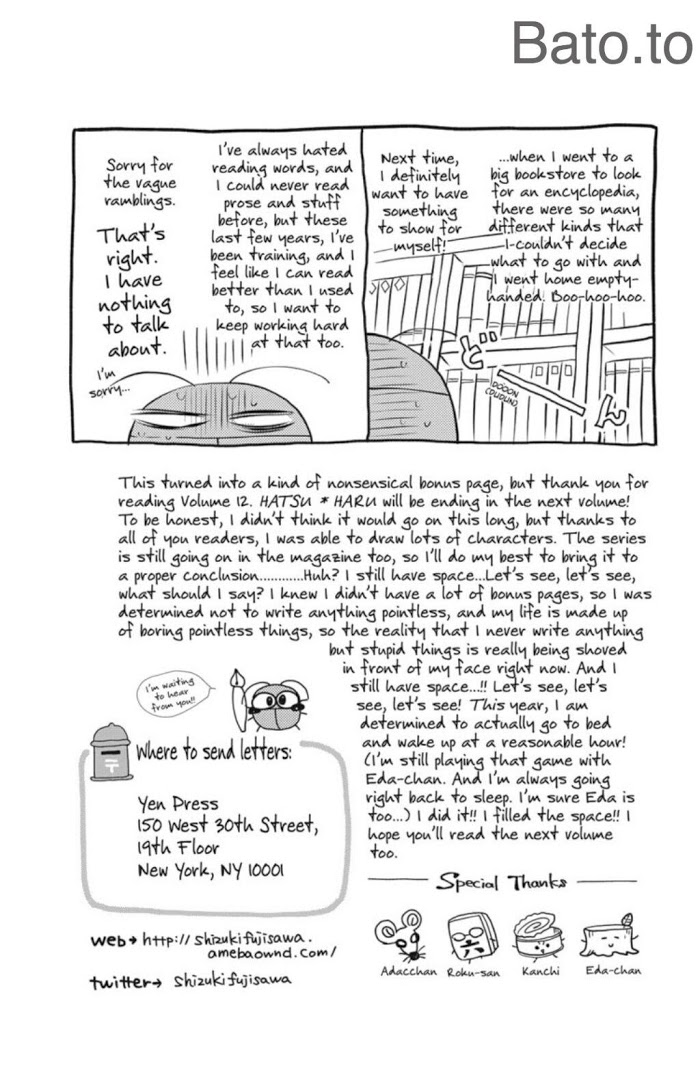 Bato.to
...when I went to a
big bookstore to look
for an encyclopedia,
there were so many
different kinds that
I couldn't decide
what to go with and
I went home empty-
handed. Boo-hoo-hoo.
Next time,
I definitely
want to have
something
to show for
myself!
ど
ん
DOOON
(DUDUN)
I've always hated
reading words, and
I could never read
prose and stuff
before, but these
last few years, I've
been training, and I
feel like I can read
better than I used
to, so I want to
keep working hard
at that too.
Sorry for
the vague
ramblings.
That's
right.
I have
nothing
to talk
about.
I'm
sorry...
This turned into a kind of nonsensical bonus page, but thank you for
reading Volume 12. HATSU * HARU will be ending in the next volume!
To be honest, I didn't think it would go on this long, but thanks to
all of you readers, I was able to draw lots of characters. The series
is still going on in the magazine too, so I'll do my best to bring it to
a proper conclusion............Huh? I still have space...Let's see, let's see,
what should I say? I knew I didn't have a lot of bonus pages, so I was
determined not to write anything pointless, and my life is made up
of boring pointless things, so the reality that I never write anything
but stupid things is really being shoved
in front of my face right now. And I
still have space...!! Let's see, let's
see, let's see! This year, I am
determined to actually go to bed
and wake up at a reasonable hour!
(I'm still playing that game with
Eda-chan. And I'm always going
right back to sleep. I'm sure Eda is
too...) I did it!! I filled the space!! I
hope you'll read the next volume
too.
I'm waiting
to hear
from you!!
〒
Where to send letters:
Yen Press
150 West 30th Street,
19th Floor
New York, NY 10001
web→ http://shizukifujisawa.
amebaownd.com/
twitter→ shizukifujisawa
Special Thanks
六
Adacchan Roku-san Kanchi Eda-chan